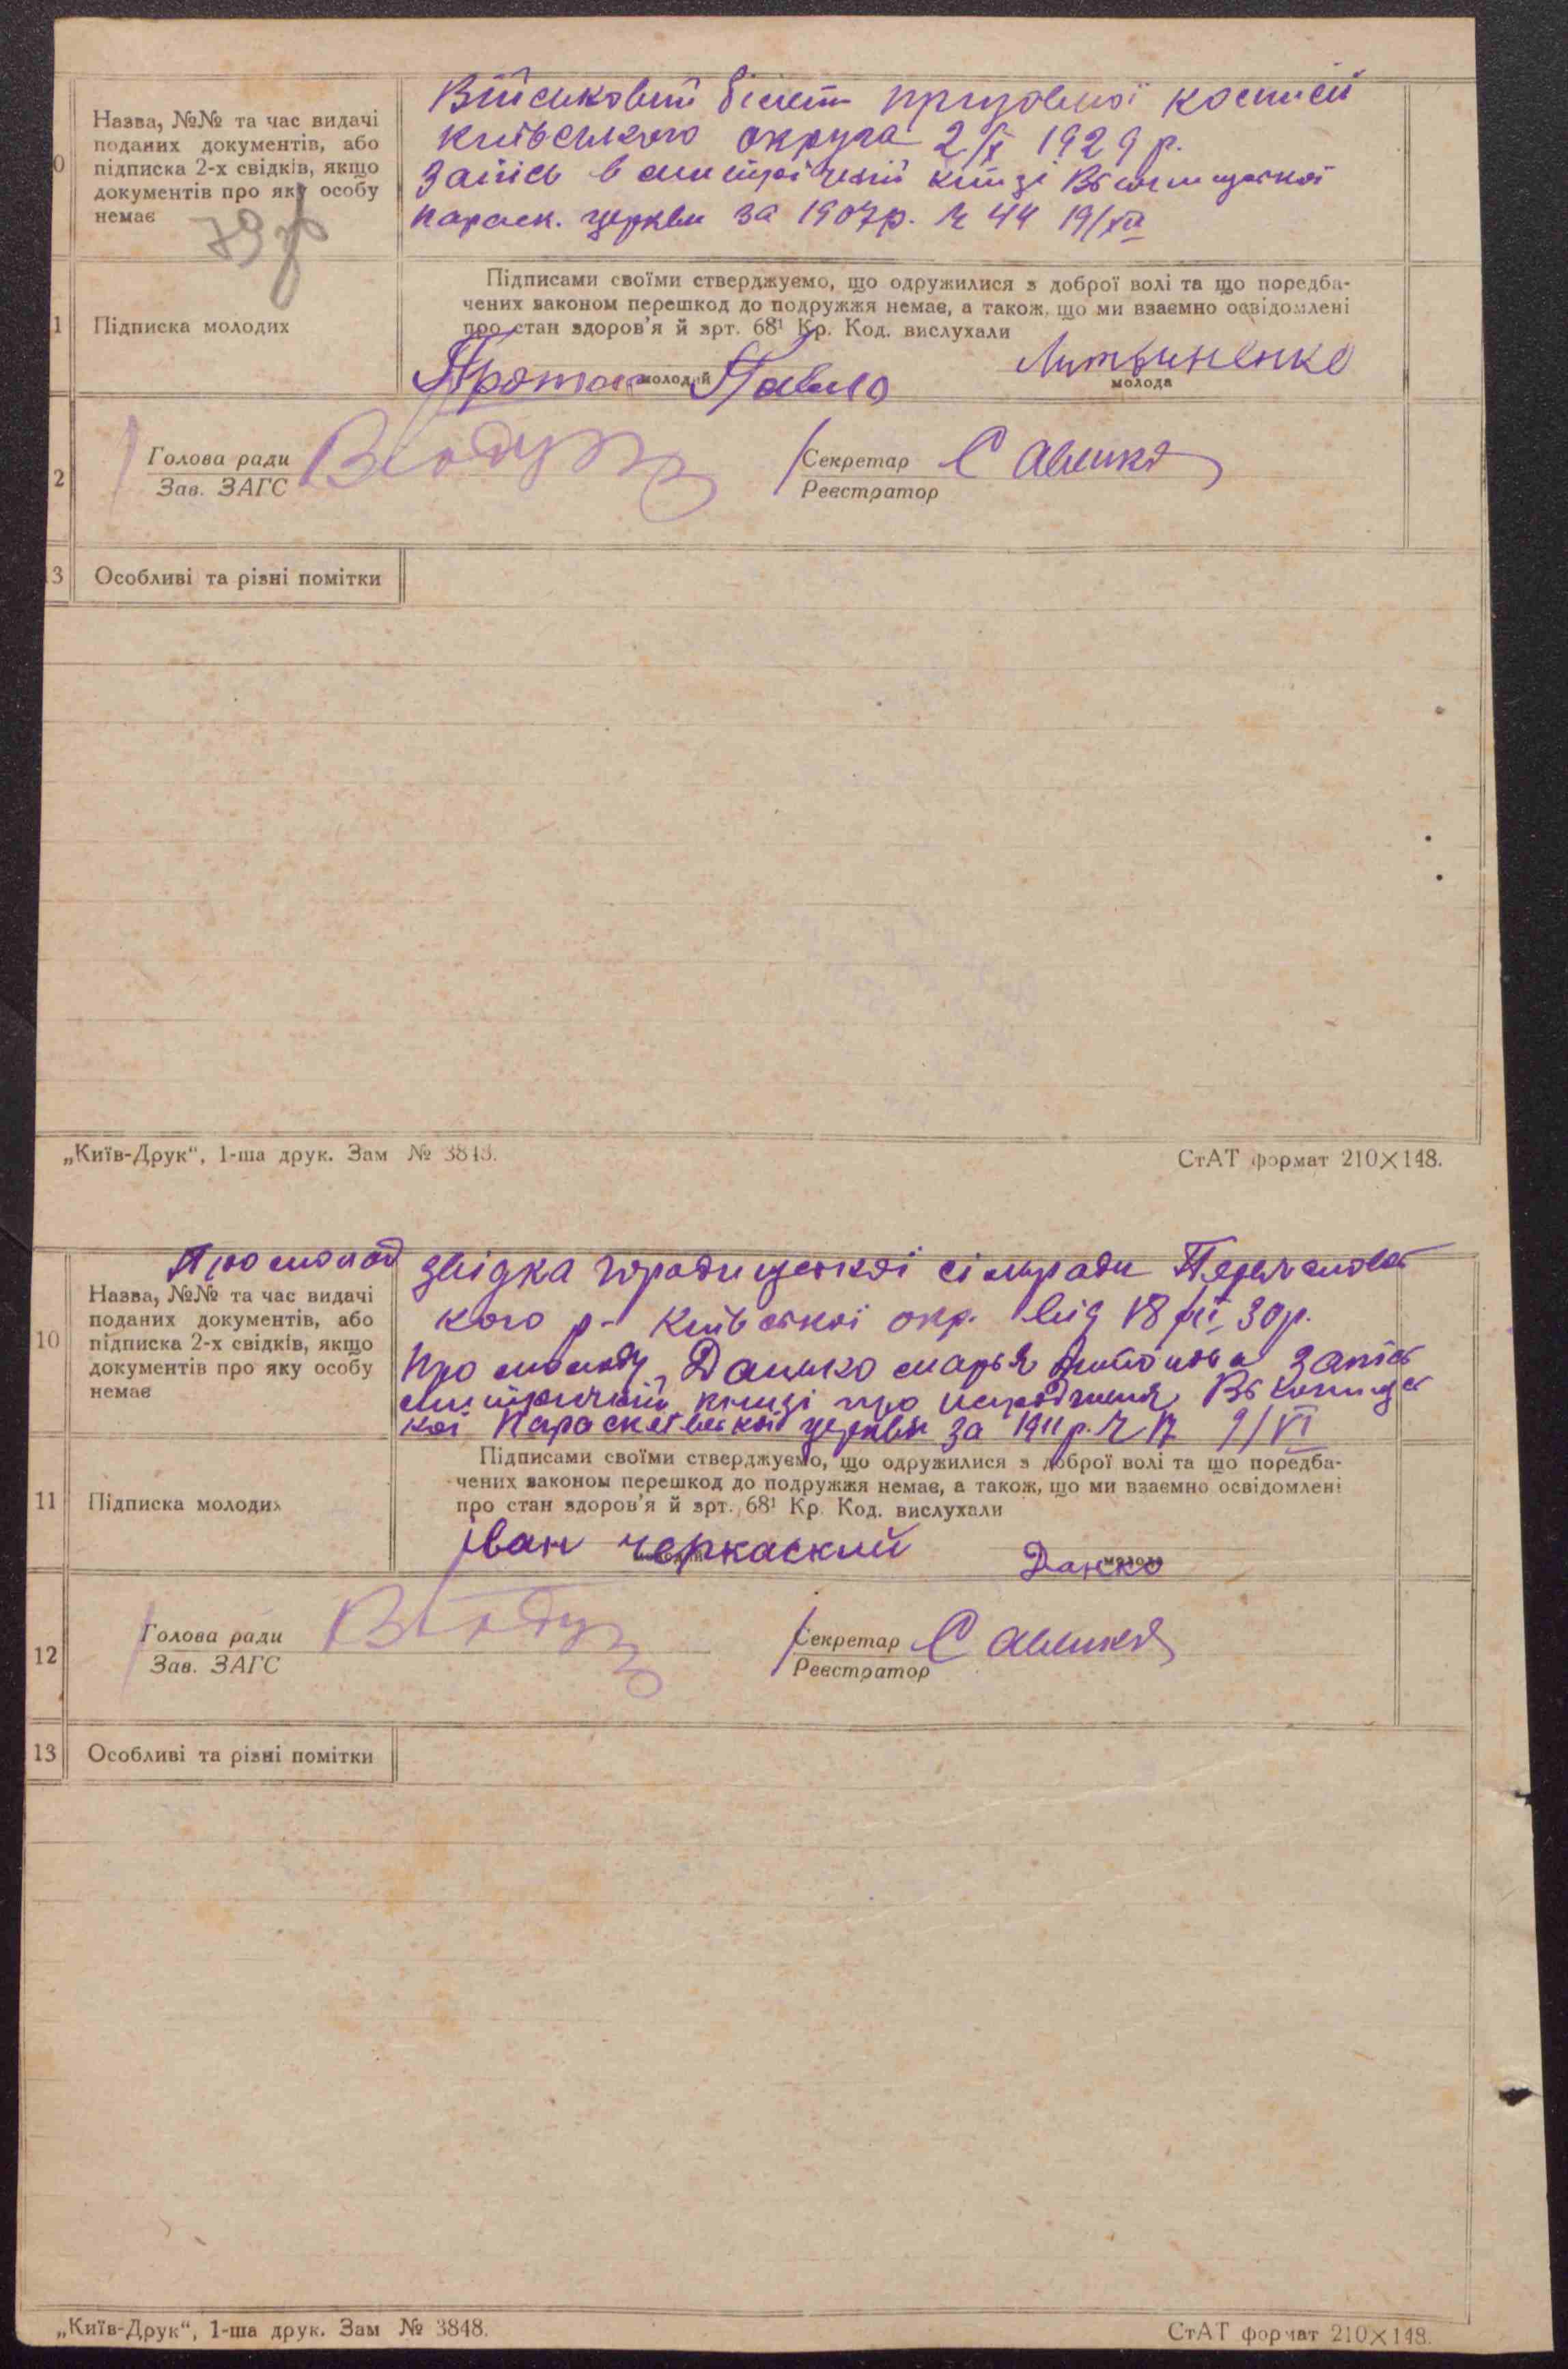 Військовий білет призовної комисії
0 Назва, №№ та час видачі поданих документів, або підписка 2-х свідків, якщо документів про яку особу немає
київського округа 2/X 1929 р.
Запісь в метричній книзі
параск. церкви за 1907р. № 44 19/XII
79
1 Підписка молодих
Підписами своїми стверджуємо, що одружилися з доброї волі та що поредба-
чених законом перешкод до подружжя немає, а також, що ми взаємно освідомлені
про стан здоров'я й арт. 68¹ Кр. Код. вислухали
Павло Литвиненко
молодий молода
2 Голова ради Секретар Савенко
Зав. ЗАГС Реєстратор
13 Особливі та різні помітки
„Київ-Друк“, 1-ша друк. Зам № 3848. СтАТ формат 210×148.
Про молод звідка городищеської сільради
10 Назва, №№ та час видачі поданих документів, або підписка 2-х свідків, якщо документів про яку особу немає
кого р- Київської окр. від 30р.
Про молоду, Данько марья запісь
метричній книзі про народження
кої Параскевевської церкви за 1911 р. 9/VI
11 Підписка молодих
Підписами своїми стверджуємо, що одружилися з доброї волі та що поредба-
чених законом перешкод до подружжя немає, а також, що ми взаємно освідомлені
про стан здоров'я й арт. 68¹ Кр. Код. вислухали
Іван черкаский Данко
молодий молода
12 Голова ради Секретар Савенко
Зав. ЗАГС Реєстратор
13 Особливі та різні помітки
„Київ-Друк“, 1-ша друк. Зам № 3848. СтАТ формат 210×148.